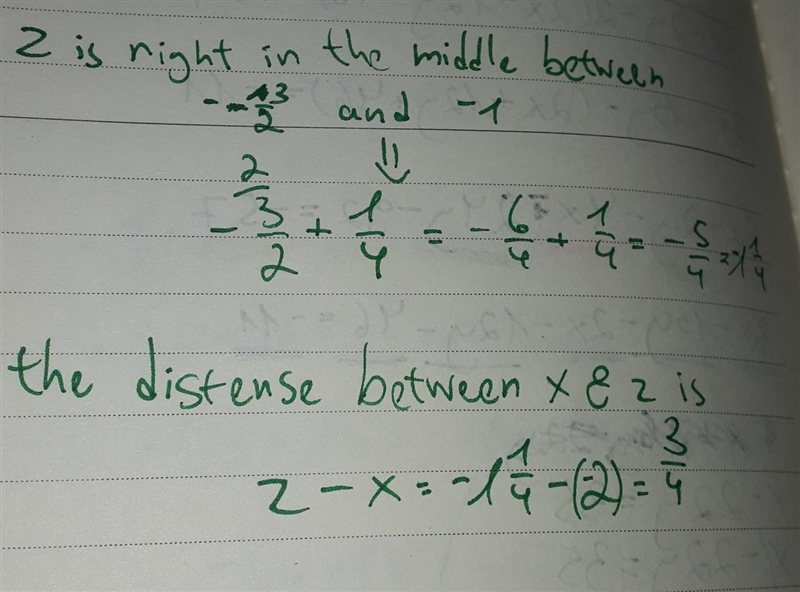 z is right in the middle between
-3/2 and -1
⇓
z
-3/2 + 1/4 = -6/4 + 1/4 = -5/4 = -1 1/4
the distense between x & z is
z - x = -1 1/4 - (-2) = 3/4